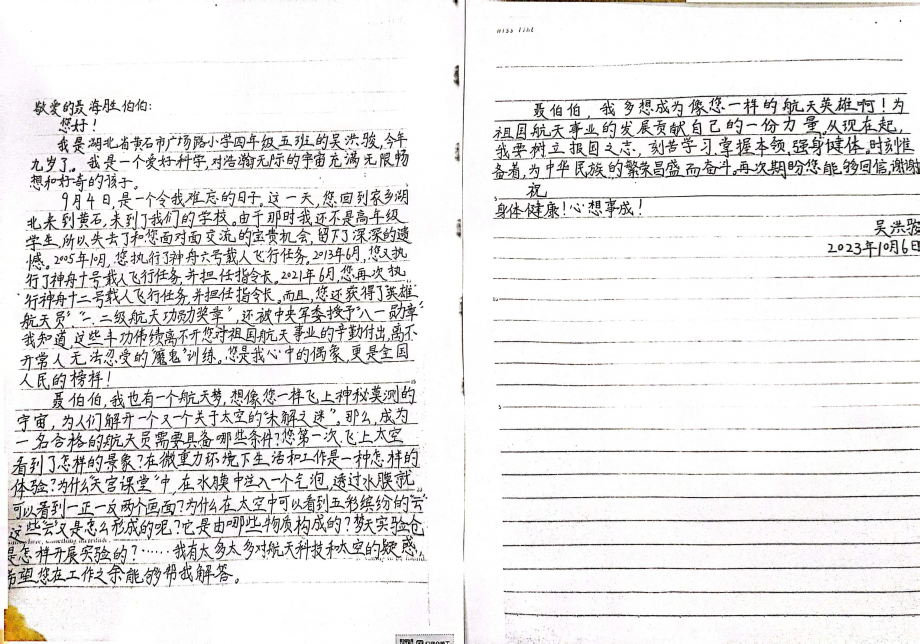 敬爱的聂海胜伯伯:
您好!
我是湖北省黄石市广场路小学四年级五班的吴洪骏,今年
九岁了。我是一个爱好科学,对浩瀚无际的宇宙充满无限畅
想和好奇的孩子。
9月4日,是一个令我难忘的日子。这一天,您回到家乡湖
北来到黄石,来到了我们的学校。由于那时我还不是高年级
学生,所以失去了和您面对面交流的宝贵机会,留下了深深的遗
憾。2005年10月,您执行了神舟六号载人飞行任务。2013年6月,您又执
行了神舟十号载人飞行任务,并担任指令长。2021年6月,您再次执
行神舟十二号载人飞行任务,并担任指令长。而且,您还获得了“英雄
航天员”、“一、二级航天功勋奖章”,还被中央军委授予“八一勋章”
我知道,这些丰功伟绩离不开您对祖国航天事业的辛勤付出,离不
开常人无法忍受的“魔鬼”训练。您是我心中的偶象,更是全国
人民的榜样!
聂伯伯,我也有一个航天梦,想像您一样飞上神秘莫测的
宇宙,为人们解开一个又一个关于太空的“未解之迷”。那么,成为
一名合格的航天员需要具备哪些条件?您第一次飞上太空
看到了怎样的景象?在微重力环境下生活和工作是一种怎样的
体验?为什么“天宫课堂”中,在水膜中注入一个气泡,透过水膜就
可以看到一正一反两个画面?为什么在太空中可以看到五彩缤纷的“云”
这些“云”又是怎么形成的呢?它是由哪些物质构成的?梦天实验仓
是怎样开展实验的?……我有太多太多对航天科技和太空的疑惑,
希望您在工作之余能够帮我解答。
miss time
聂伯伯,我多想成为像您一样的航天英雄啊!为
祖国航天事业的发展贡献自己的一份力量。从现在起,
我要树立报国之志,刻苦学习掌握本领,强身健体,时刻准
备着,为中华民族的繁荣昌盛而奋斗。再次期盼您能够回信,谢谢
祝
身体健康!心想事成!
吴洪骏
2023年10月6日